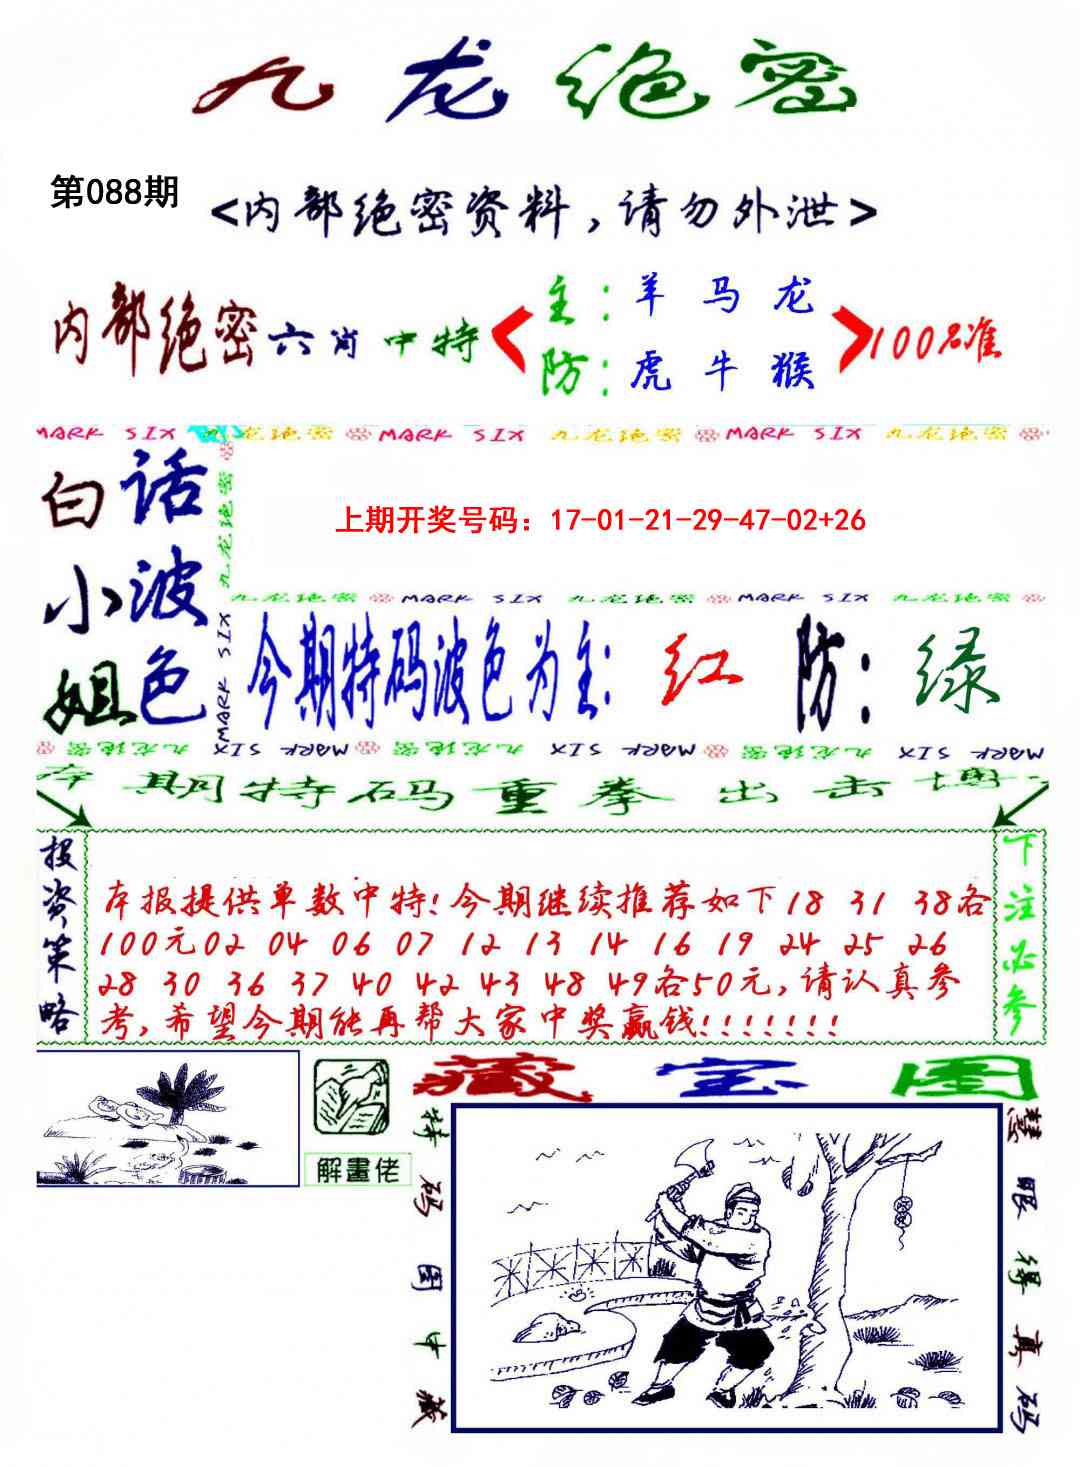 九龙绝密
第088期
<内部绝密资料,请勿外泄>
内部绝密六肖中特
主:羊 马 龙
防:虎 牛 猴
100%准
MARK SIX 九龙绝密 MARK SIX 九龙绝密 MARK SIX 九龙绝密
白话小波姐色
九龙绝密
MARK SIX
上期开奖号码：17-01-21-29-47-02+26
九龙绝密 MARK SIX 九龙绝密 MARK SIX 九龙绝密
今期特码波色为主:红 防:绿
九龙绝密 MARK SIX 九龙绝密 MARK SIX 九龙绝密 MARK SIX
本期特码重拳出击博
投资策略
本报提供单数中特!今期继续推荐如下18 31 38各
100元02 04 06 07 12 13 14 16 19 24 25 26
28 30 36 37 40 42 43 48 49各50元,请认真参
考,希望今期能再帮大家中奖赢钱!!!!!!!
下注必参
解畫佬
藏宝图
特码图中藏
慧眼得真码